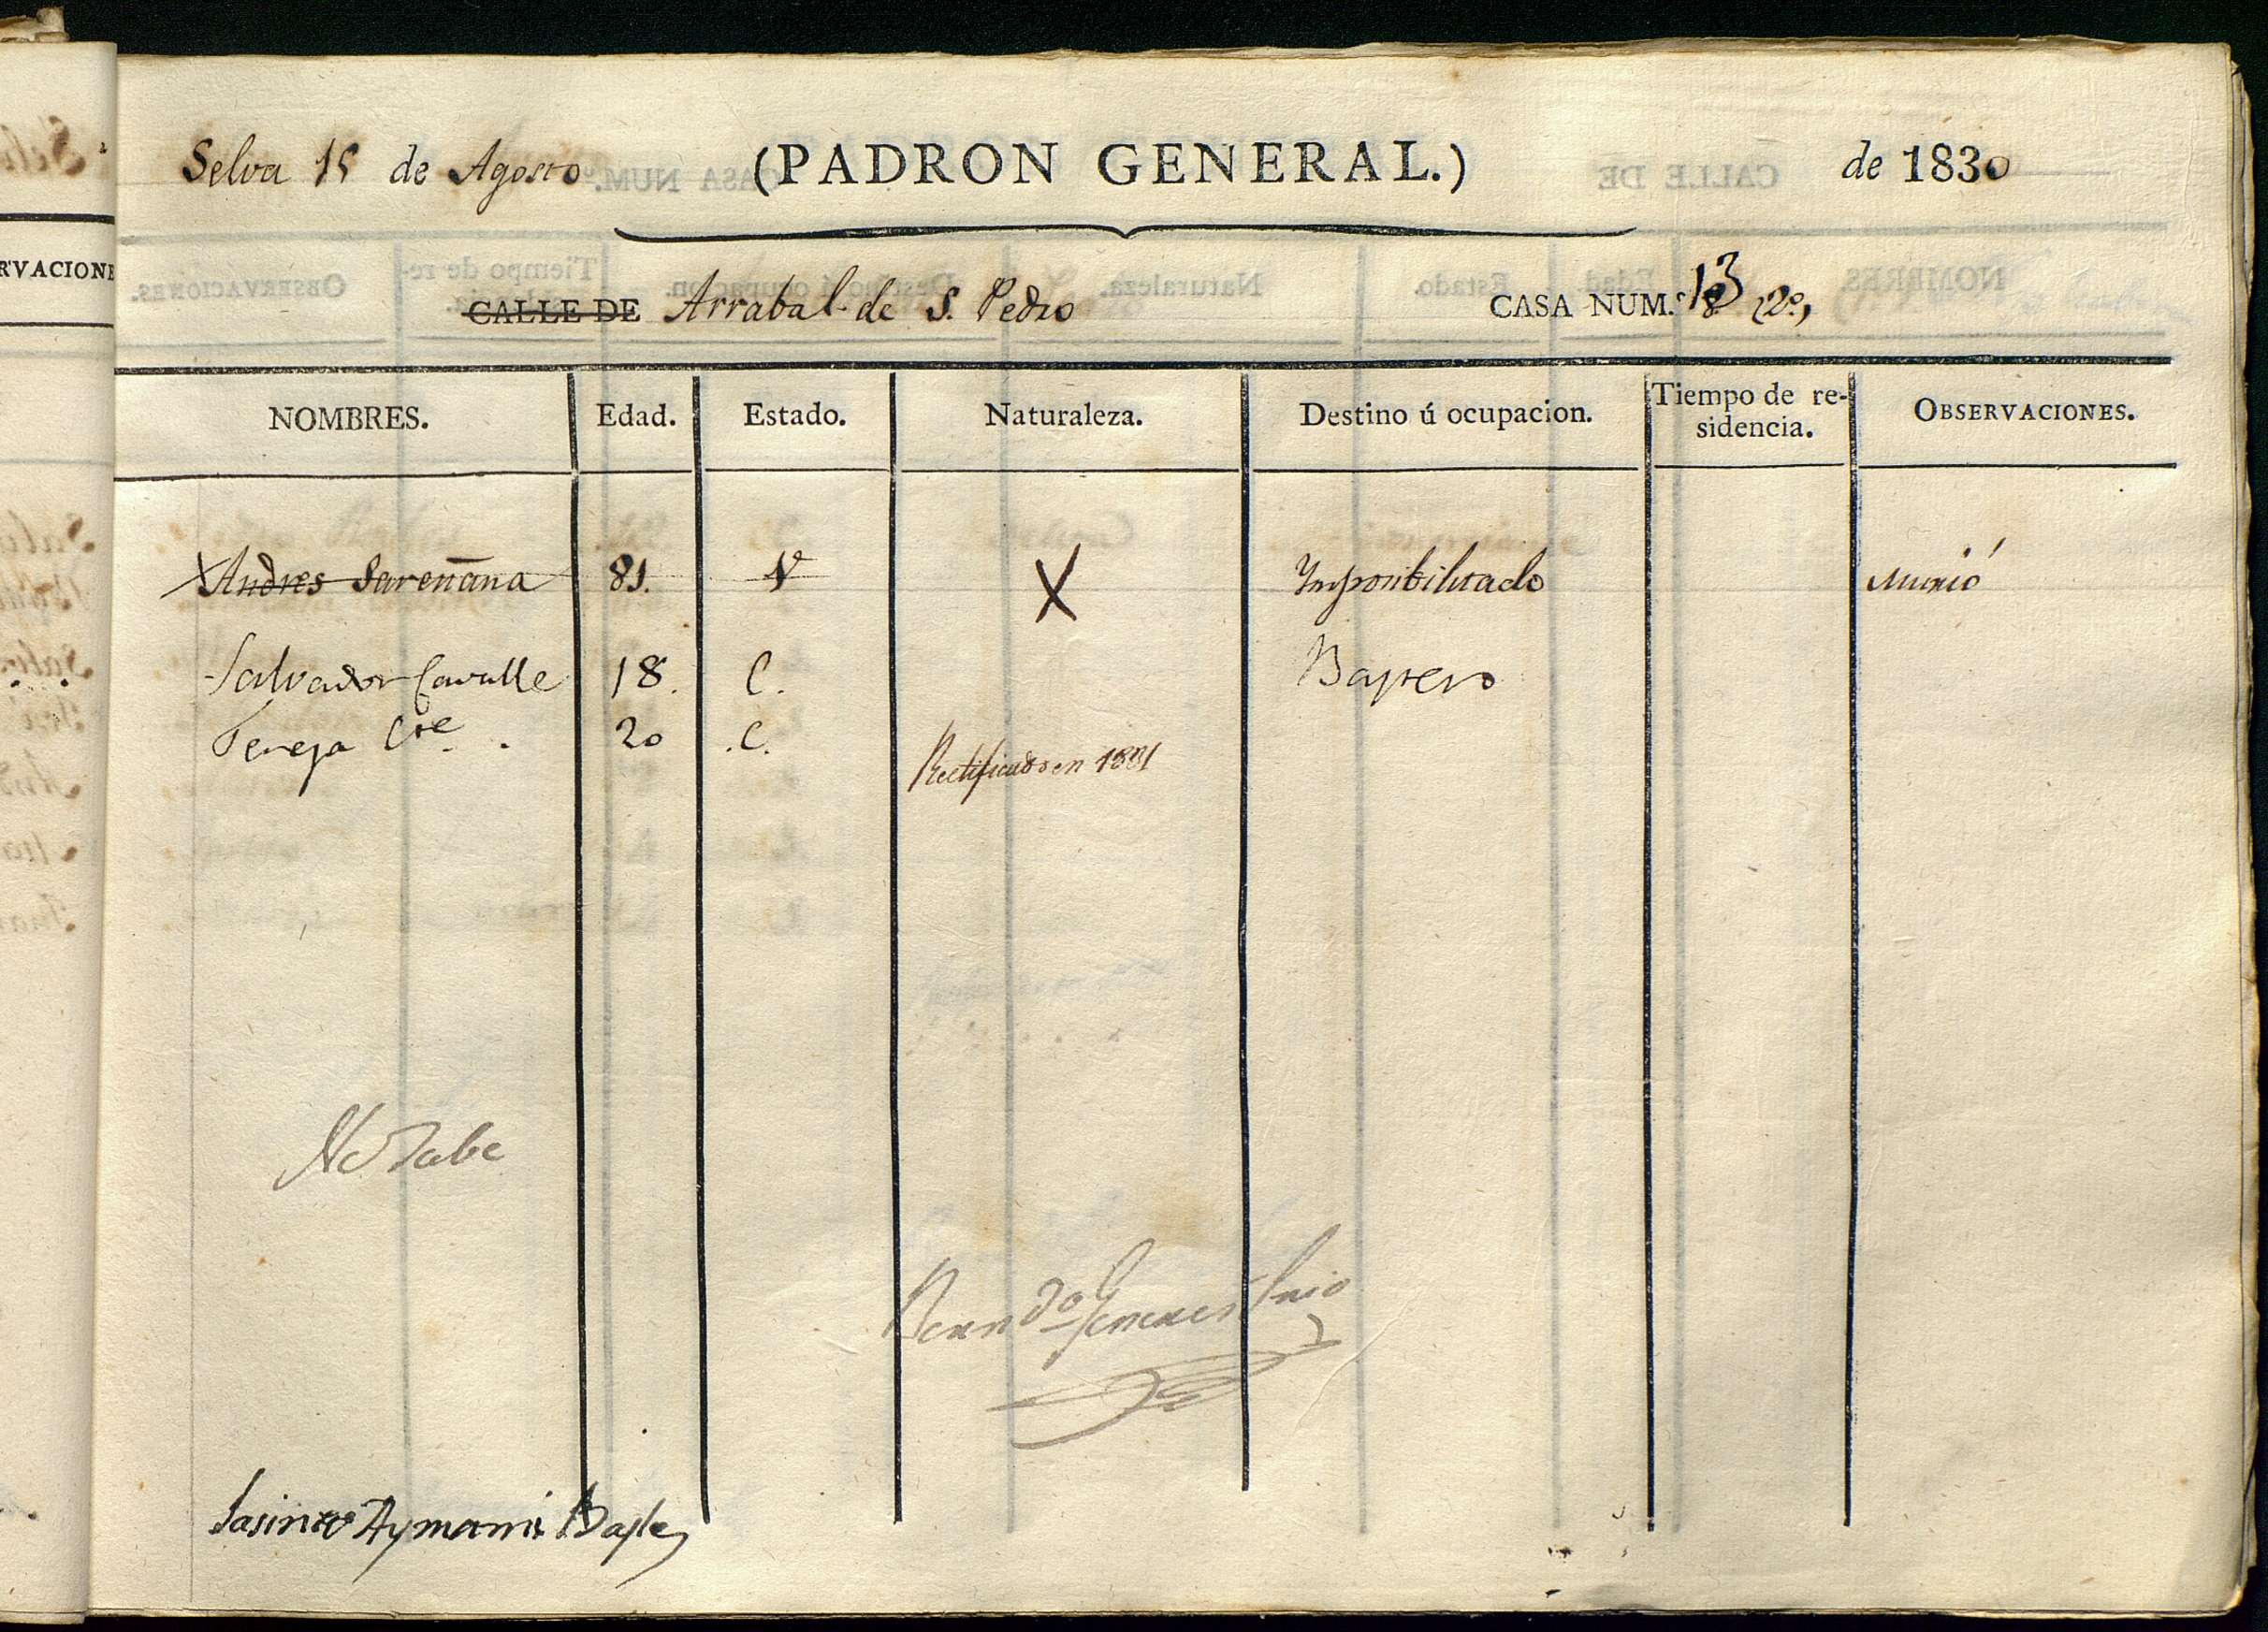 Selva 15 de Agosto (PADRON GENERAL.) de 1830
CALLE DE Arrabal de S. Pedro CASA NUM.º 13 2º,
NOMBRES. Edad. Estado. Naturaleza. Destino ú ocupacion. Tiempo de re-
sidencia. OBSERVACIONES.
RVACIONE
Andres Sareñana 81. V X Imposibilitado Murió
Salvador Cavalle 18. C. Bastero
Teresa 20 C.
Rectificado en 1831
No Sabe
Aymami Bayle